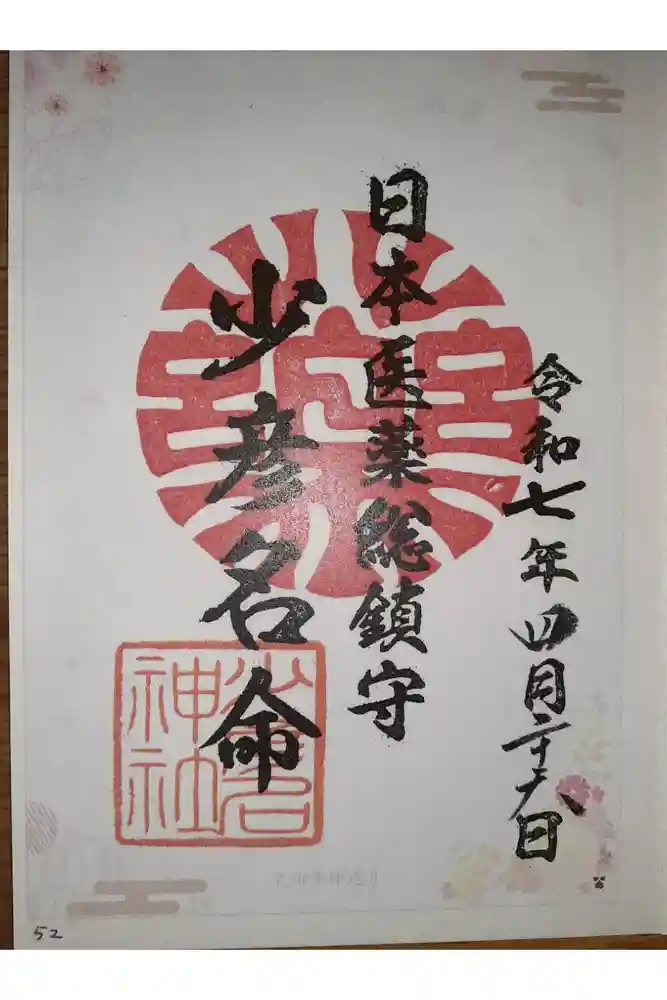 令和七年四月二十六日
日本医薬総鎮守
少彦名命
神社
52